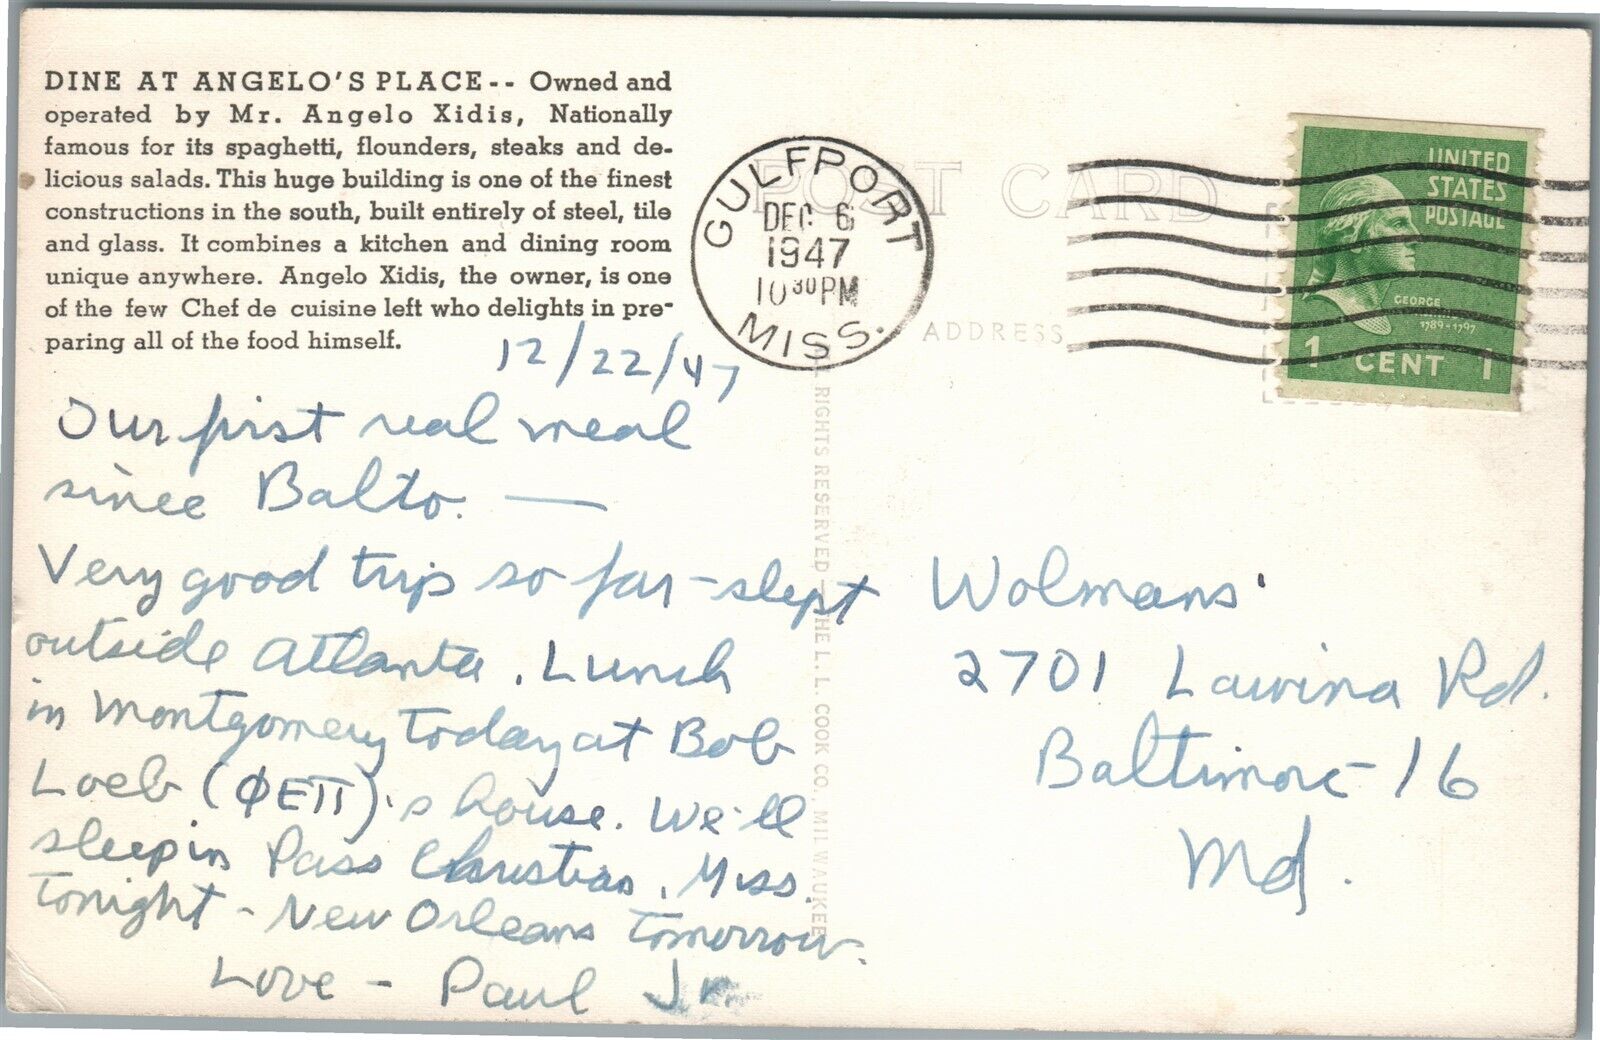 DINE AT ANGELO'S PLACE-- Owned and
operated by Mr. Angelo Xidis, Nationally
famous for its spaghetti, flounders, steaks and de-
licious salads. This huge building is one of the finest
constructions in the south, built entirely of steel, tile
and glass. It combines a kitchen and dining room
unique anywhere. Angelo Xidis, the owner, is one
of the few Chef de cuisine left who delights in pre-
paring all of the food himself.
12/22/47
Our first real meal
since Balto. —
Very good trip so far - slept
outside Atlanta. Lunch
in Montgomery today at Bob
Loeb (ΦΕΠ)'s house. We'll
sleep in Pass Christian, Miss.
tonight - New Orleans tomorrow.
Love - Paul Jr.
POST CARD
ADDRESS
GULFPORT
DEC 6
1947
10 30 PM
MISS.
UNITED
STATES
POSTAGE
GEORGE
1789-1797
1 CENT 1
RIGHTS RESERVED—THE L. L. COOK CO., MILWAUKEE
Wolmans'
2701 Lawina Rd.
Baltimore - 16
Md.